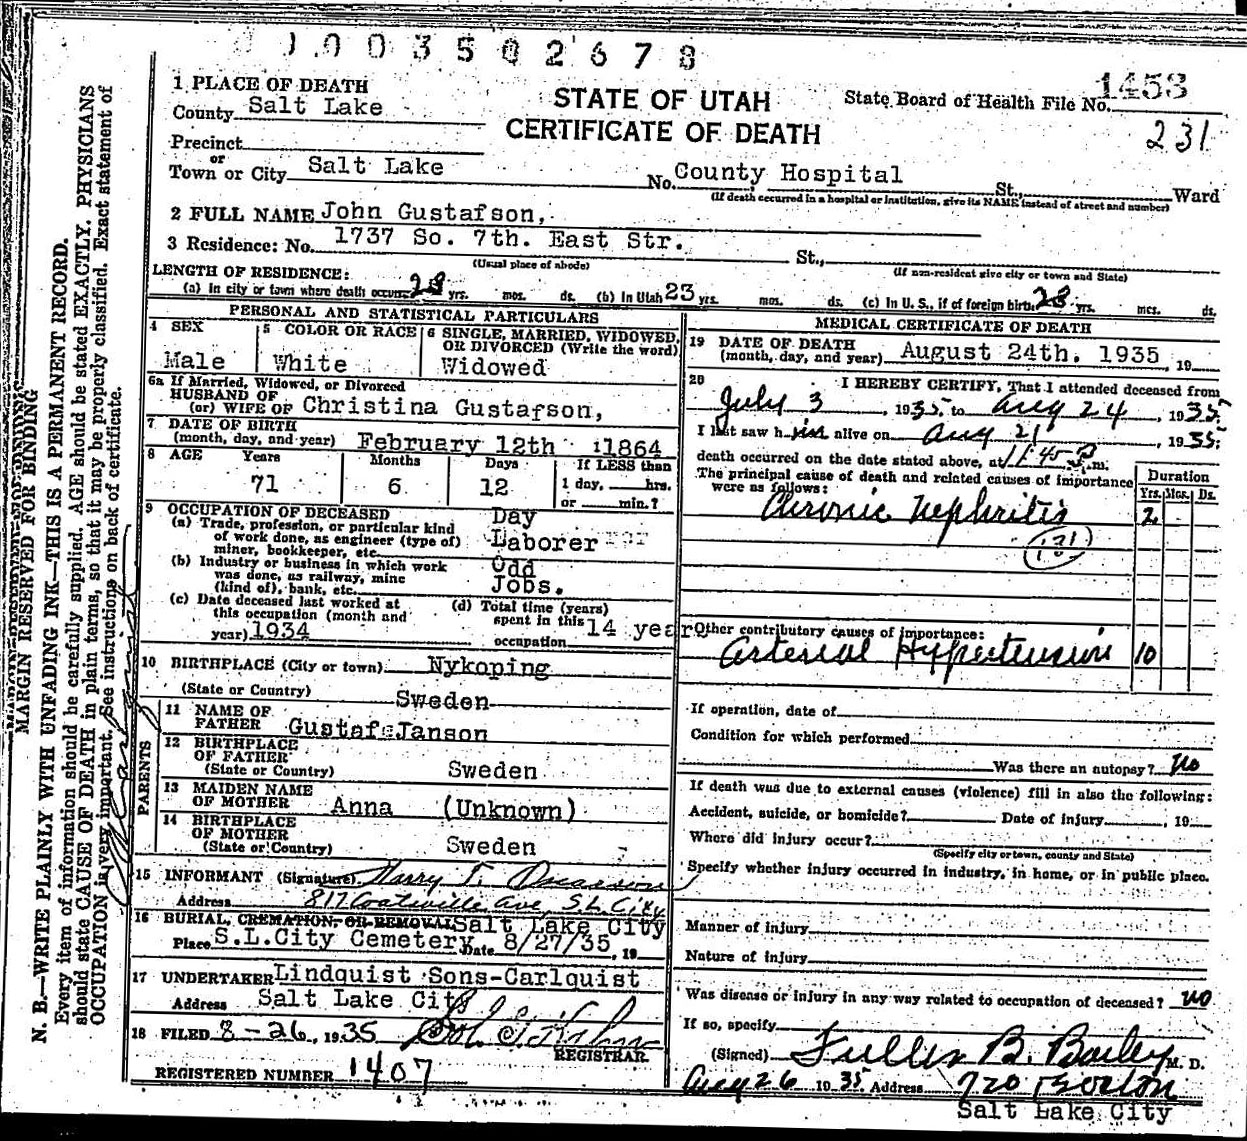 1003502678
1 PLACE OF DEATH
County Salt Lake
STATE OF UTAH
CERTIFICATE OF DEATH
State Board of Health File No. 1453
231
Precinct
or
Town or City Salt Lake No. County Hospital St., Ward
(If death occurred in a hospital or institution, give its NAME instead of street and number)
2 FULL NAME John Gustafson,
3 Residence: No. 1737 So. 7th. East Str. St.,
(Usual place of abode) (If non-resident give city or town and State)
LENGTH OF RESIDENCE:
(a) In city or town where death occurs 23 yrs. mos. ds. (b) In Utah 23 yrs. mos. ds. (c) In U. S., if of foreign birth 23 yrs. mos. ds.
PERSONAL AND STATISTICAL PARTICULARS
4 SEX
Male
5 COLOR OR RACE
White
6 SINGLE, MARRIED, WIDOWED,
OR DIVORCED (Write the word)
Widowed
6a If Married, Widowed, or Divorced
HUSBAND OF
(or) WIFE OF Christina Gustafson,
7 DATE OF BIRTH
(month, day, and year) February 12th 1864
8 AGE Years Months Days If LESS than
71 6 12 1 day, hrs.
or min.?
9 OCCUPATION OF DECEASED
(a) Trade, profession, or particular kind
of work done, as engineer (type of)
miner, bookkeeper, etc. Day
Laborer
(b) Industry or business in which work
was done, as railway, mine
(kind of), bank, etc. Odd
Jobs.
(c) Date deceased last worked at
this occupation (month and
year) 1934
(d) Total time (years)
spent in this
occupation 14 year
10 BIRTHPLACE (City or town) Nykoping
(State or Country) Sweden
PARENTS
11 NAME OF
FATHER Gustaf Janson
12 BIRTHPLACE
OF FATHER
(State or Country) Sweden
13 MAIDEN NAME
OF MOTHER Anna (Unknown)
14 BIRTHPLACE
OF MOTHER
(State or Country) Sweden
15 INFORMANT (Signature) Harry T.
Address 817 Coatsville Ave, S.L. City
16 BURIAL, CREMATION, OR REMOVAL Salt Lake City
Place S.L.City Cemetery Date 8/27/35, 19
17 UNDERTAKER Lindquist Sons-Carlquist
Address Salt Lake City
18 FILED 8-26, 1935
REGISTRAR
REGISTERED NUMBER 1407
MEDICAL CERTIFICATE OF DEATH
19 DATE OF DEATH
(month, day, and year) August 24th. 1935, 19
20 I HEREBY CERTIFY, That I attended deceased from
July 3, 1935 to Aug 24, 1935
I last saw him alive on Aug 21, 1935
death occurred on the date stated above, at 11:45 P.m.
The principal cause of death and related causes of importance
were as follows: Duration
Yrs. Mos. Ds.
Chronic Nephritis 2
(131)
Other contributory causes of importance:
Arterial Hypertension 10
If operation, date of
Condition for which performed
Was there an autopsy? no
If death was due to external causes (violence) fill in also the following:
Accident, suicide, or homicide? Date of injury, 19
Where did injury occur?
(Specify city or town, county and State)
Specify whether injury occurred in industry, in home, or in public place.
Manner of injury
Nature of injury
Was disease or injury in any way related to occupation of deceased? no
If so, specify
(Signed) Fuller B. Bailey M. D.
Aug 26 1935 Address 720 Boston
Salt Lake City
MARGIN RESERVED FOR BINDING
N. B.—WRITE PLAINLY WITH UNFADING INK—THIS IS A PERMANENT RECORD.
Every item of information should be carefully supplied. AGE should be stated EXACTLY. PHYSICIANS
should state CAUSE OF DEATH in plain terms, so that it may be properly classified. Exact statement of
OCCUPATION is very important. See instructions on back of certificate.